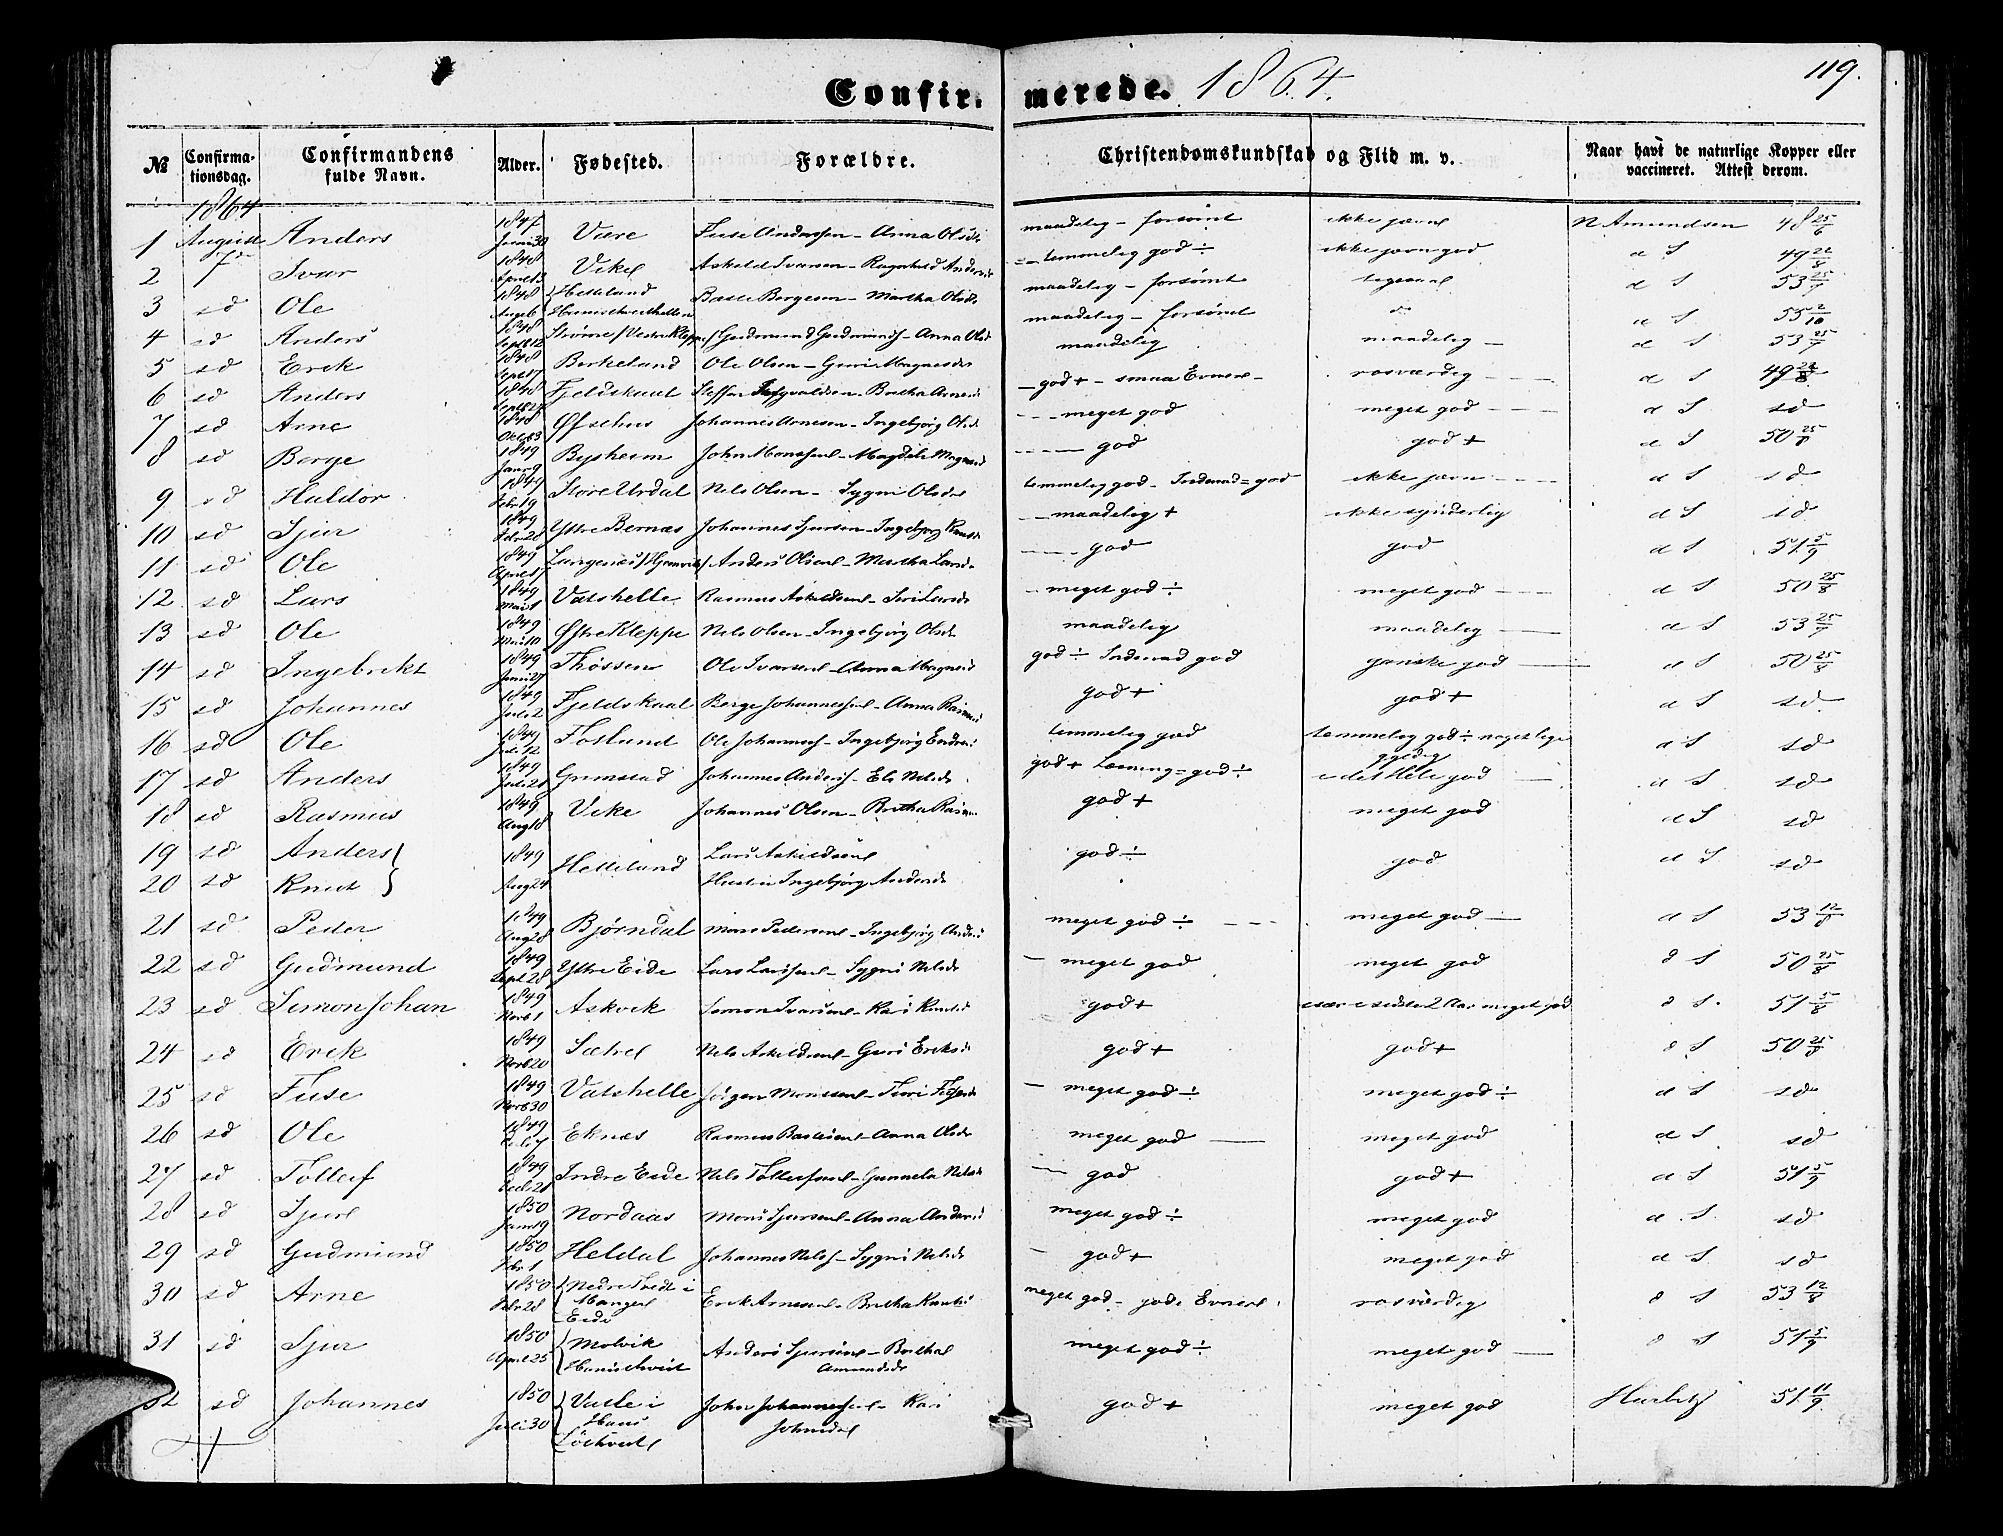 119.
Confirmerede. 1864.
№ Confirmationsdag. Confirmandens fulde Navn. Alder. Fødested. Forældre. Christendomskundskab og Flid m. v. Naar havt de naturlige Kopper eller vaccineret. Attest derom.
1864
1 August 7de Anders 1847 Juni 30 Være Fuse Anderssen - Anna Olsdr maadelig - forsømt ikke jævn N Amundsen 48 25/6
2 Ivar 1848 April 13 Vikel Askild Ivarsen - Ragnhild Andersdr temmelig god ÷ ikke jævn god d S 49 22/8
3 sd Ole 1848 Aug 6 Helleland Børge Børgesen - Martha Olsdr maadelig - forsømt d S 53 25/7
4 sd Anders 1848 Sept 12 Strømre/Vestre Kleppe/ Gudmund Gudmunds - Anna Olsd maadelig - forsømt do d S 55 2/10
5 sd Erik 1848 Sept 17 Birkeland Ole Olsen - Guri Magnesdr maadelig maadelig - d S 53 25/7
6 sd Anders 1848 Sept 27 Fjeldskaal Steffen - Britha Arnesdr - god + - smaa Evner - rosværdig - d S 49 22/8
7 sd Arne 1848 Octbr 3 Øfsthus Johannes Arnesen - Ingebjørg Olsdr - meget god meget god - d S sd
8 sd Børge 1849 Janr 9 Bysheim John Monssen - Magdeli Magnesd - god god + d S 50 25/8
9 sd Haldor 1849 Febr 19 Store Urdal Nels Olsen - Sygni Olsdr temmelig god - Indenad = god ikke jævn - d S sd
10 sd Sjur 1849 Febr 28 Ystre Bernæs Johannes Sjursen - Ingebjørg Knutsd - maadelig + ikke synderlig d S sd
11 sd Ole 1849 April 17 Langenæs/Hjemvik/ Anders Olsen - Martha Larsd - god god d S 51 5/9
12 sd Lars 1849 Mai 1 Vatshelle Rasmus Askildsen - Siri Larsdr - meget god ÷ meget god - d S 50 25/8
13 sd Ole 1849 Mai 10 Østre Kleppe Nels Olsen - Ingebjørg Olsdr maadelig maadelig - d S 53 25/7
14 sd Ingebrikt 1849 Juni 27 Thøssen Ole Ivarsen - Anna Magnesd god ÷ Indenad god ganske god - d S 50 25/8
15 sd Johannes 1849 Juli 2 Fjeldskaal Berge Johannessen - Anna Rasmusd god + god + d S sd
16 sd Ole 1849 Juli 12 Fosland Ole Johanness - Ingebjørg Endresd temmelig god temmelig god ÷ noget d S sd
17 sd Anders 1849 Juli 28 Grimstad Johannes Anders - Eli Nelsdr god + Læsning = god ÷ i det Hele god - d S sd
18 sd Rasmus 1849 Aug 18 Vike Johannes Olsen - Britha Rasm god + meget god d S sd
19 sd Anders 1849 Helleland Lars Askildsen god ÷ god d S sd
20 sd Knut Aug 24 Hustru Ingebjørg Andersdr
21 sd Peder 1849 Aug 28 Bjørndal Mons Pedersen - Ingebjørg Andersd meget god ÷ - meget god - d S 53 12/8
22 sd Gudmund 1849 Sept 28 Ystre Eide Lars Larssen - Sygni Nelsdr - meget god meget god d S 50 25/8
23 sd Simon Johan 1849 Novb 1 Askvik Simon Ivarsen - Kari Knutsd god + især i sidste 2 Aar meget god d S. 51 5/8
24 sd Erik 1849 Novb 20 Sætre Nels Askildsen - Guri Eriksdr god + god + d S 50 25/8
25 sd Fuse 1849 Novb 30 Vatshelle Jørgen Monssen - - meget god ÷ meget god ÷ d S sd
26 sd Ole 1849 Eknæs Rasmus - Anna Olsdr meget god - meget god d S sd
27 sd Tollef 1849 Decb 21 Indre Eide Nels Tollefsen - Gunnela Nelsdr - god god + d S 51 5/9
28 sd Sjur 1850 Janr 19 Nordaas Mons Sjursen - Anna Andersd meget god ÷ meget god d. S. sd
29 sd Gudmund 1850 Febr 1 Heldal Johannes Nelss - Sygni Nelsdr - god + meget god d S sd
30 sd Arne 1850 Febr 28 Nedre Tvedt i Manger Eide Erik Arnesen - Britha Knutsd meget god - gode Evner rosværdig d S 53 12/8
31 sd Sjur 1850 April 25 Molvik Anders Sjursen - Britha Amundsdr meget god ÷ meget god - d S 51 5/9
32 sd Johannes 1850 Juli 30 Vatle i Hans John Johannessen - Kari Johnsd god + meget god Harbitz 51 11/9